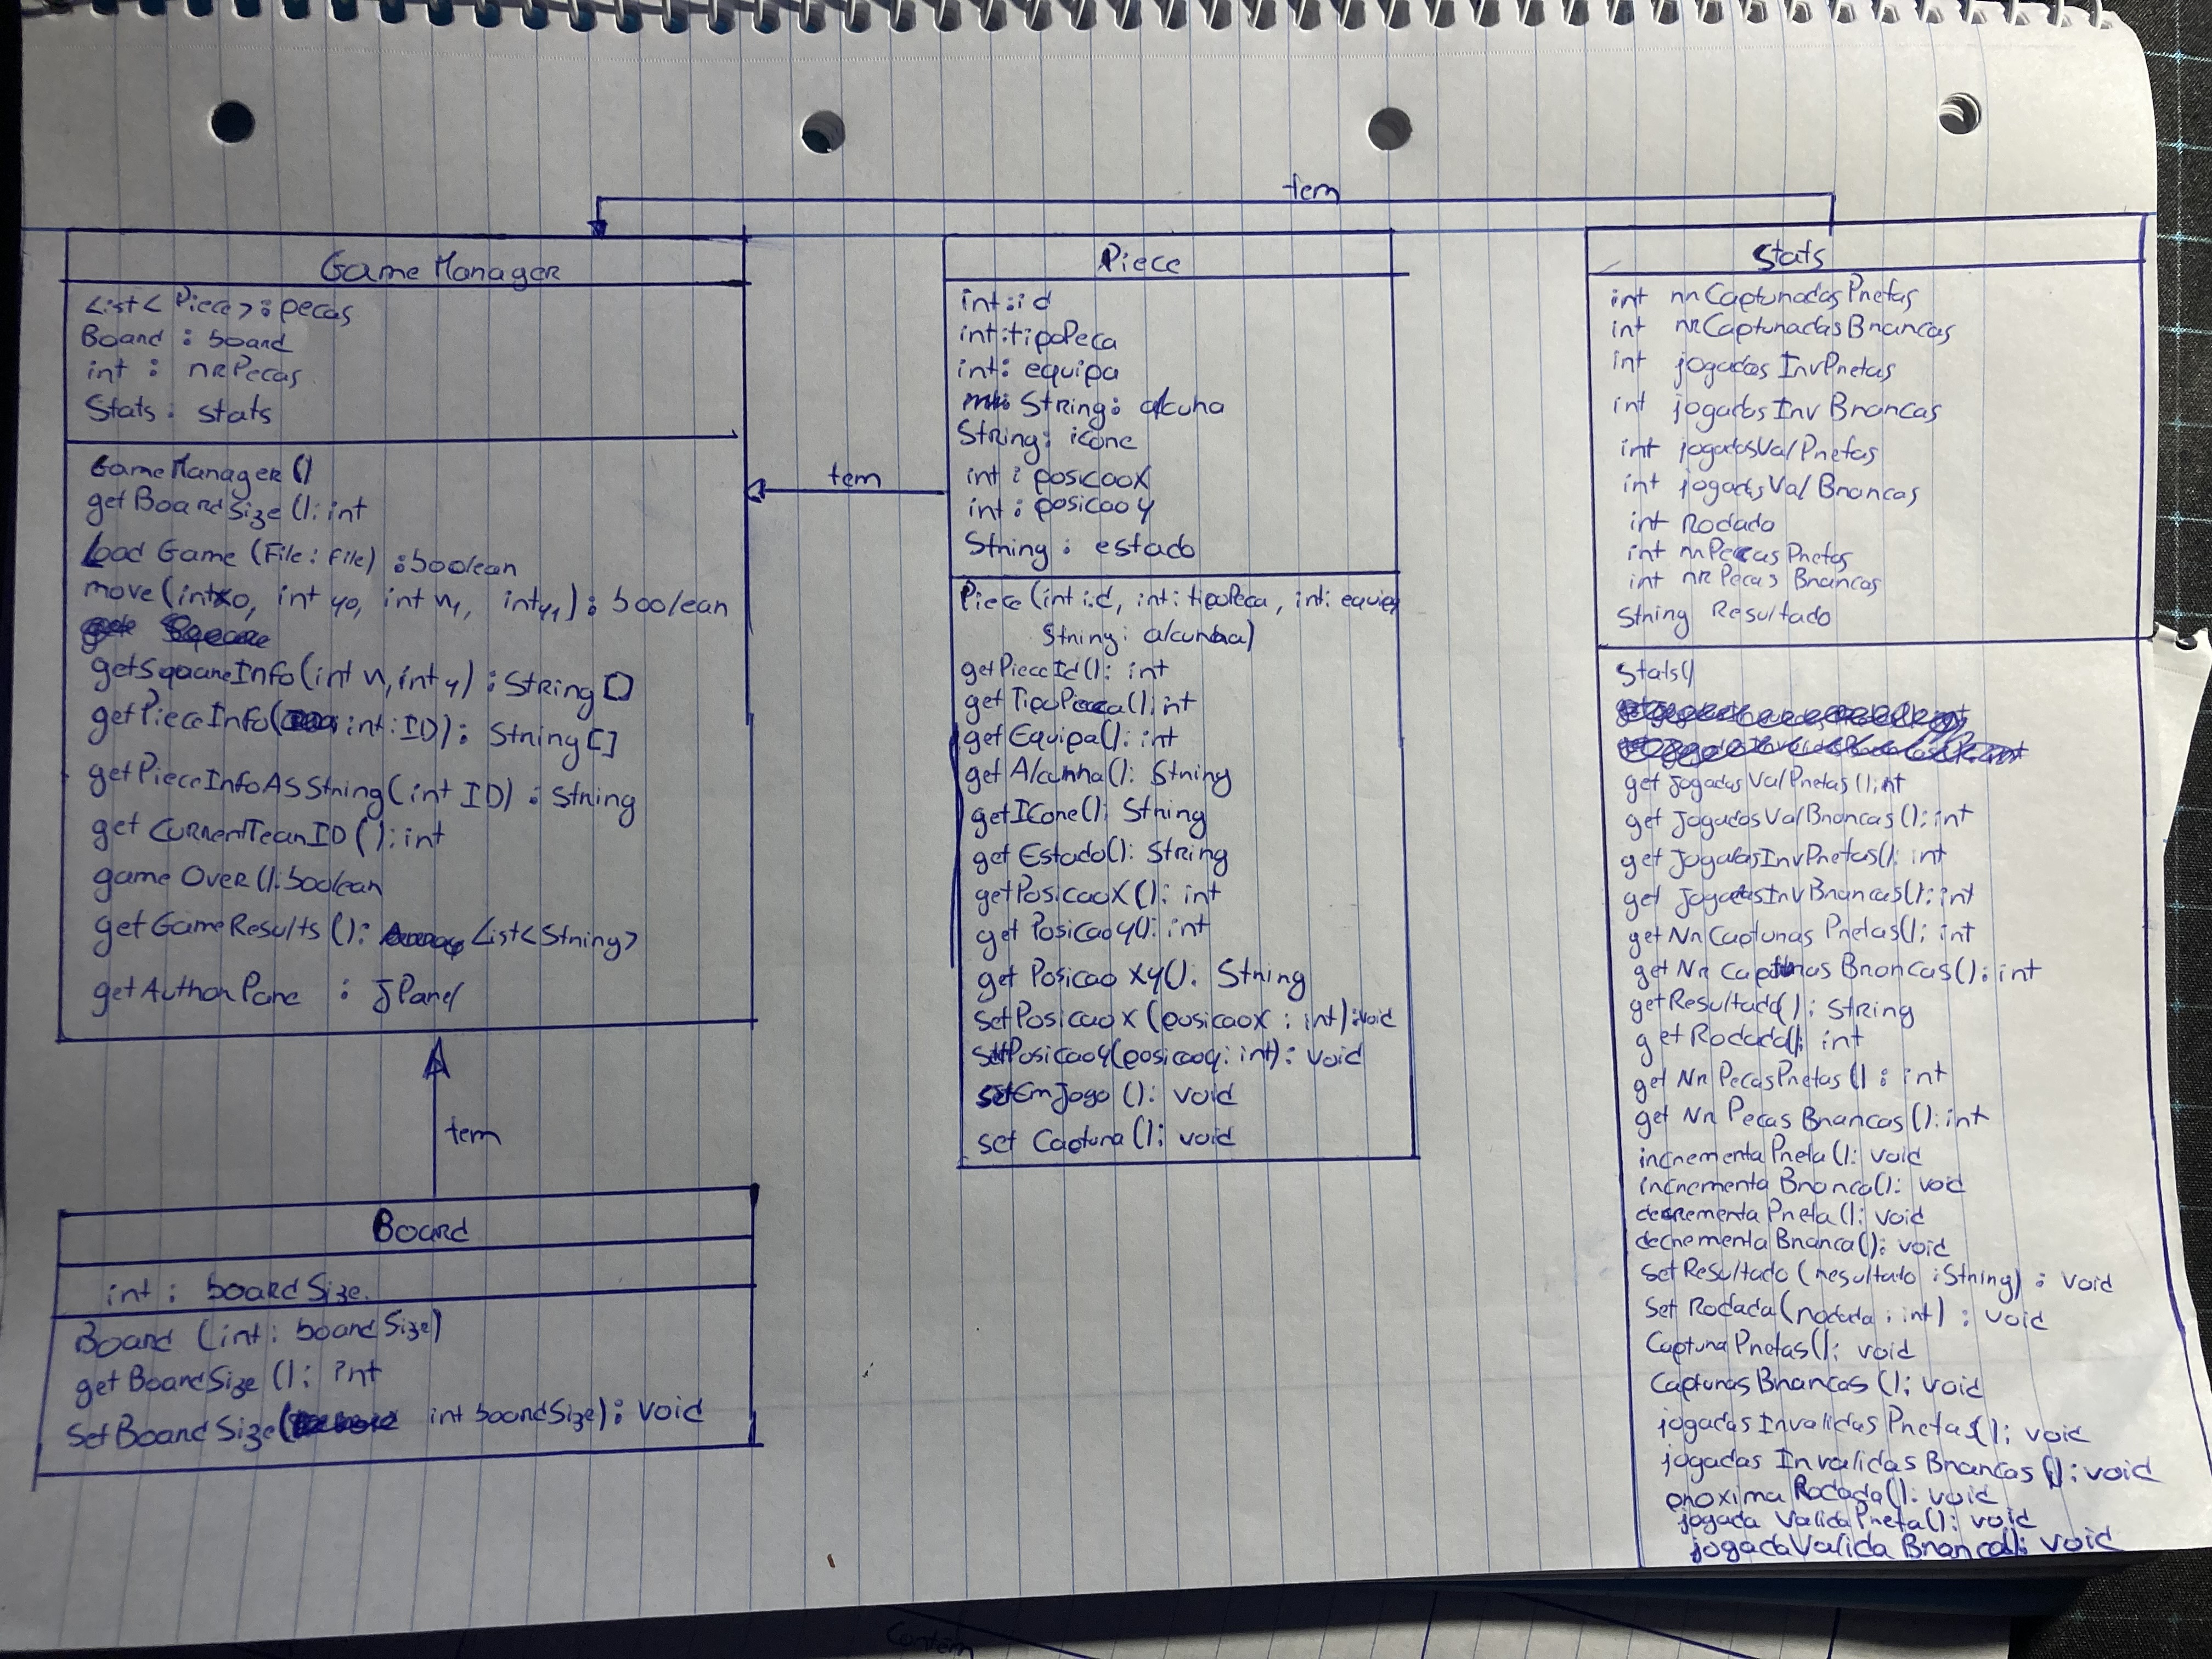 Game Manager
List<Piece> : pecas
Board : board
int : nrPecas
Stats : stats
GameManager()
getBoardSize() : int
load Game (File : file) : boolean
move (int x0, int y0, int x1, int y1) : boolean
getSquareInfo (int x, int y) : String []
getPieceInfo ( int : ID) : String []
getPieceInfoAsString (int ID) : String
get CurrentTeamID () : int
game Over () : boolean
get GameResults () : List<String>
get AuthorPane : JPanel
tem
Board
int : boardSize
Board (int : boardSize)
getBoardSize () : int
setBoardSize ( int boardSize) : void
tem
Piece
int : id
int : tipoPeca
int : equipa
String : alcunha
String : icone
int : posicaoX
int : posicaoY
String : estado
Piece (int : id, int : tipoPeca, int : equipa
String : alcunha)
getPieceId() : int
get TipoPeca() : int
get Equipa() : int
get Alcunha() : String
get ICone() : String
get Estado() : String
get PosicaoX() : int
get PosicaoY() : int
get Posicao XY() : String
set Posicao X (posicaoX : int) : void
set Posicao Y (posicaoY : int) : void
set Em Jogo () : void
set Captura () : void
tem
Stats
int nrCapturadas Pretas
int nrCapturadas Brancas
int jogadas InvPretas
int jogadas Inv Brancas
int jogadasValPretas
int jogadas Val Brancas
int Rodada
int nrPecas Pretas
int nrPecas Brancas
String Resultado
Stats()
get JogadasValPretas() : int
get JogadasValBrancas() : int
get JogadasInvPretas() : int
get JogadasInvBrancas() : int
get NrCapturas Pretas() : int
get Nr Capturas Brancas() : int
getResultado() : String
get Rodada() : int
get NrPecasPretas () : int
get NrPecas Brancas () : int
incrementa Preta() : void
incrementa Branca() : void
decrementa Preta() : void
decrementa Branca() : void
set Resultado (resultado : String) : void
set Rodada (rodada : int) : void
Captura Pretas() : void
Capturas Brancas () : void
jogadas Invalidas Pretas() : void
jogadas Invalidas Brancas () : void
proxima Rodada() : void
jogada Valida Preta() : void
jogada Valida Branca() : void
Contem